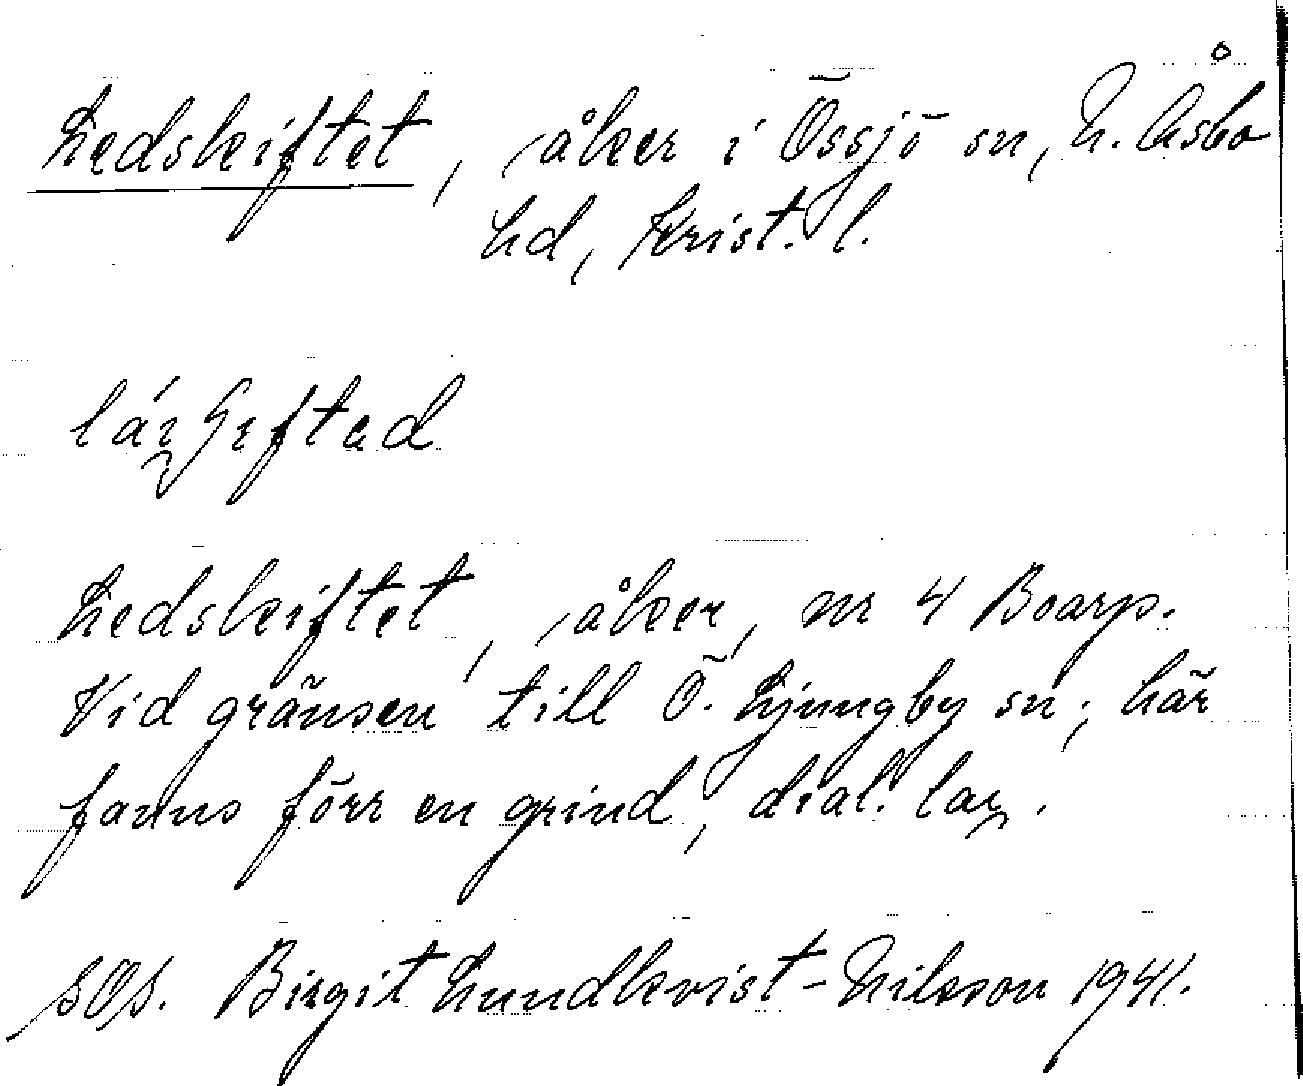 Ledskiftet, åker i Össjö sn, N. Åsbo
hd, Krist. l.
Ledskiftet, åker, nr 4 Boarp.
Vid gränsen till Ö. Ljungby sn; här
fanns förr en grind, dial.
Birgit Lundkvist-Nilsson 1941.